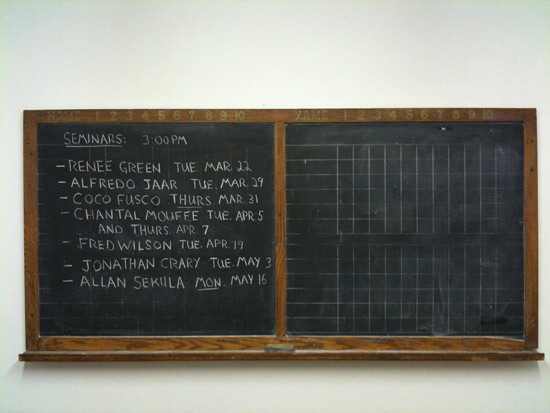 NAME 1 2 3 4 5 6 7 8 9 10
NAME 1 2 3 4 5 6 7 8 9 10
SEMINARS: 3:00PM
- RENEÉ GREEN TUE. MAR. 22
- ALFREDO JAAR TUE. MAR. 29
- COCO FUSCO THURS. MAR. 31
- CHANTAL MOUFFE TUE. APR 5
AND THURS. APR. 7
- FRED WILSON TUE. APR. 19
- JONATHAN CRARY TUE. MAY 3
- ALLAN SEKULA MON. MAY 16